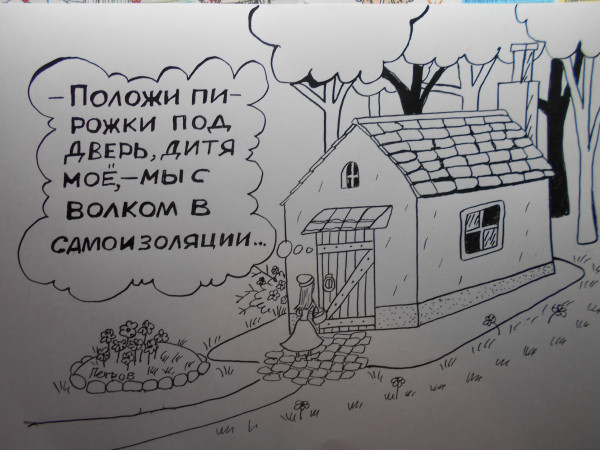 – Положи пи-
рожки под
дверь, дитя
моё, – мы с
волком в
самоизоляции...
Петров